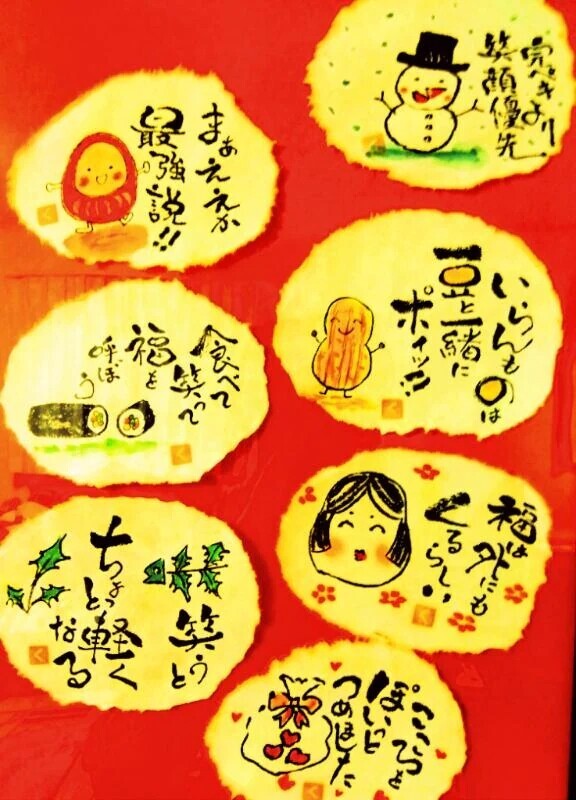 完ペキより
笑顔優先
まぁええか
最強説!!
いらんものは
豆と一緒に
ポイッ!!
食べて
笑って
福を
呼ぼう
福は外にも
くるらしい
笑うと
ちょっと軽く
なる
ぽいっと
つめました